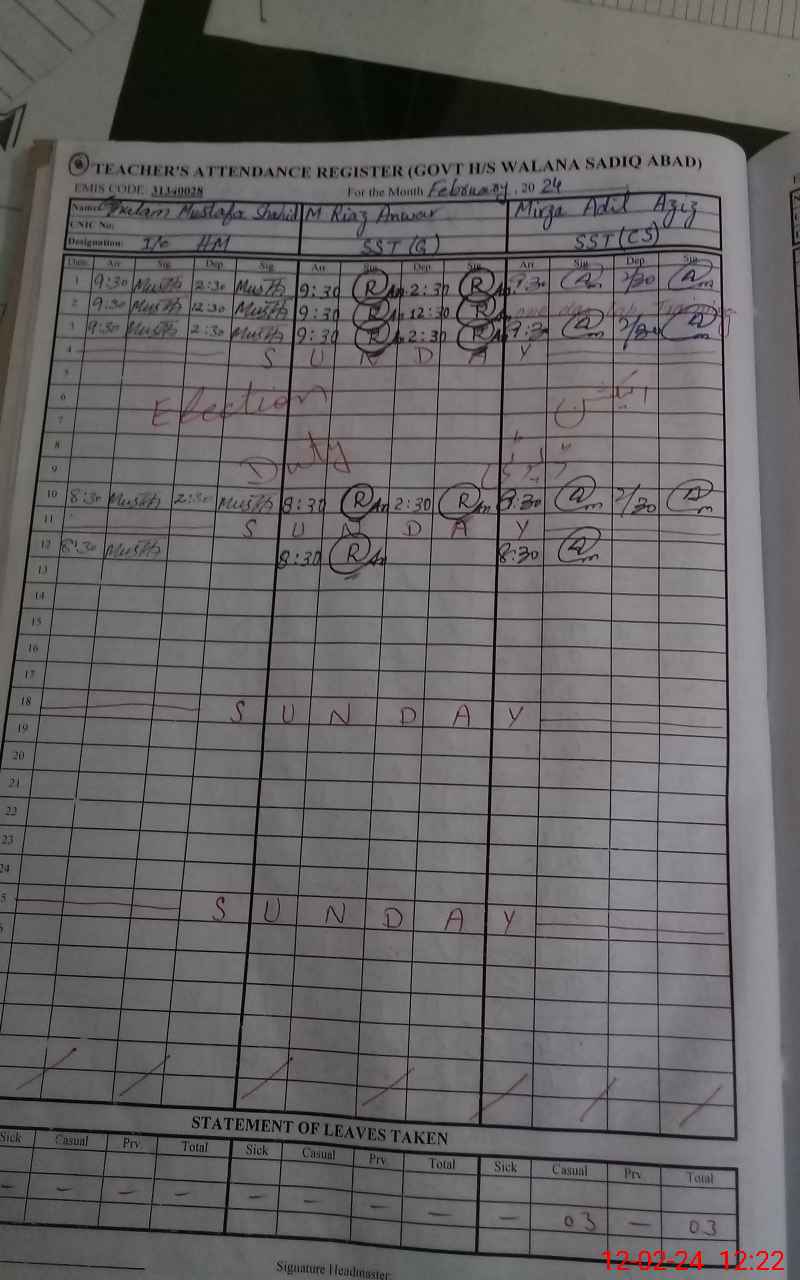 TEACHER'S ATTENDANCE REGISTER (GOVT H/S WALANA SADIQ ABAD)
EMIS CODE 31340028 For the Month February, 20 24
Name: Mustafa Shahid M Riaz Anwar Mirza Adil Aziz
CNIC No:
Designation: I/c HM SST(G) SST(CS)
Date Arr Sig Dep Sig Arr Sig Dep Sig Arr Sig Dep Sig
1 9:30 Mustfa 2:30 Mustfa 9:30 R An 2:30 R An 9:30 2/30
2 9:30 Mustfa 12:30 Mustfa 9:30 R An 12:30 R An one day Training
3 9:30 Mustfa 2:30 Mustfa 9:30 R An 2:30 R An 9:30 2/30
4 S U N D A Y
5
6 Election الیکشن
7
8 Duty
9
10 8:30 Mustfa 2:30 Mustfa 8:30 R An 2:30 R An 8:30 2/30
11 S U N D A Y
12 8:30 Mustfa 8:30 R An 8:30
13
14
15
16
17
18 S U N D A Y
19
20
21
22
23
24
5 S U N D A Y
STATEMENT OF LEAVES TAKEN
Sick Casual Prv. Total Sick Casual Prv. Total Sick Casual Prv. Total
— — — — — — — — — 03 — 03
Signature Headmaster
12-02-24 12:22